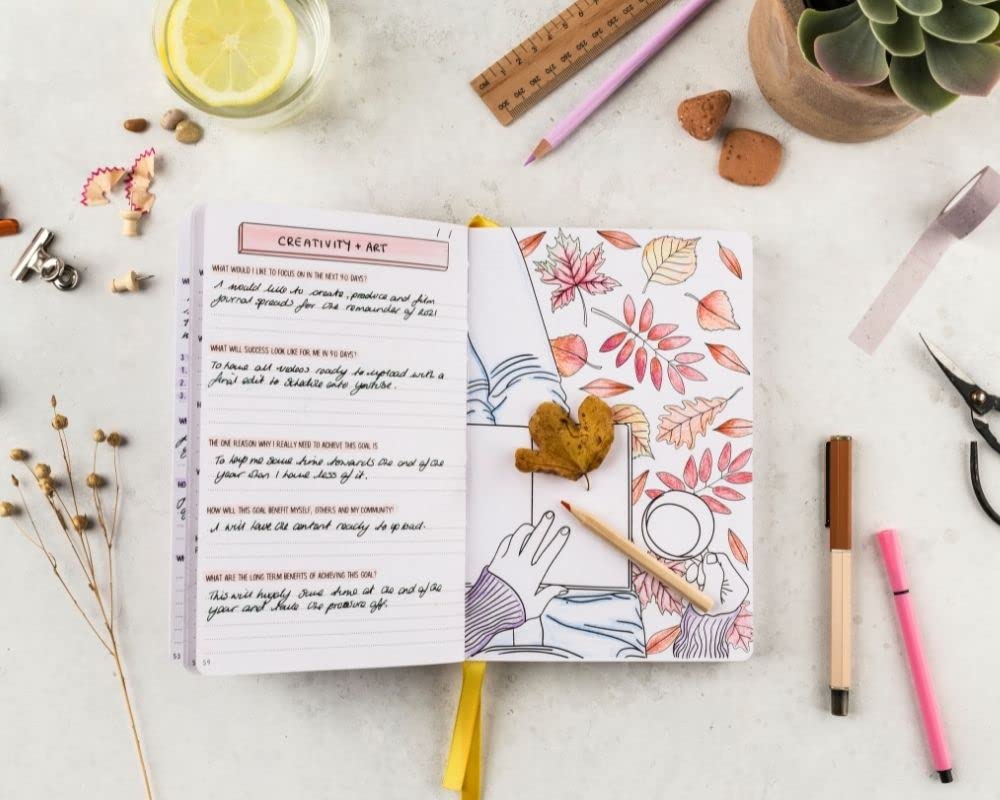 CREATIVITY + ART
WHAT WOULD I LIKE TO FOCUS ON IN THE NEXT 90 DAYS?
I would like to create, produce and film
journal spreads for the remainder of 2021
WHAT WILL SUCCESS LOOK LIKE FOR ME IN 90 DAYS?
To have all videos ready to upload with a
final edit to schedule onto youtube.
THE ONE REASON WHY I REALLY NEED TO ACHIEVE THIS GOAL IS
To help me save time towards the end of the
year when I have less of it.
HOW WILL THIS GOAL BENEFIT MYSELF, OTHERS AND MY COMMUNITY?
I will have the content ready to upload.
WHAT ARE THE LONG TERM BENEFITS OF ACHIEVING THIS GOAL?
This will hopefully save time at the end of the
year and take the pressure off.
53
59